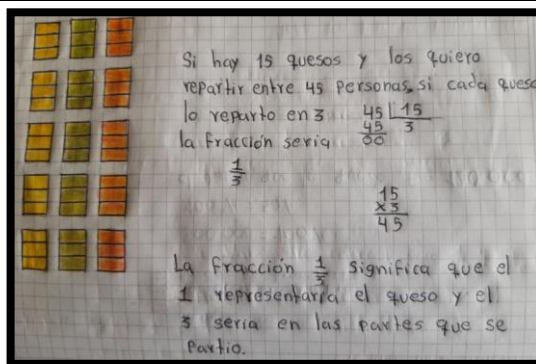 Si hay 15 quesos y los quiero
repartir entre 45 personas, si cada queso
lo reparto en 3 45 | 15
la fracción seria 45 3
00
1/3
15
x 3
45
La fracción 1/3 significa que el
1 representaría el queso y el
3 seria en las partes que se
partio.